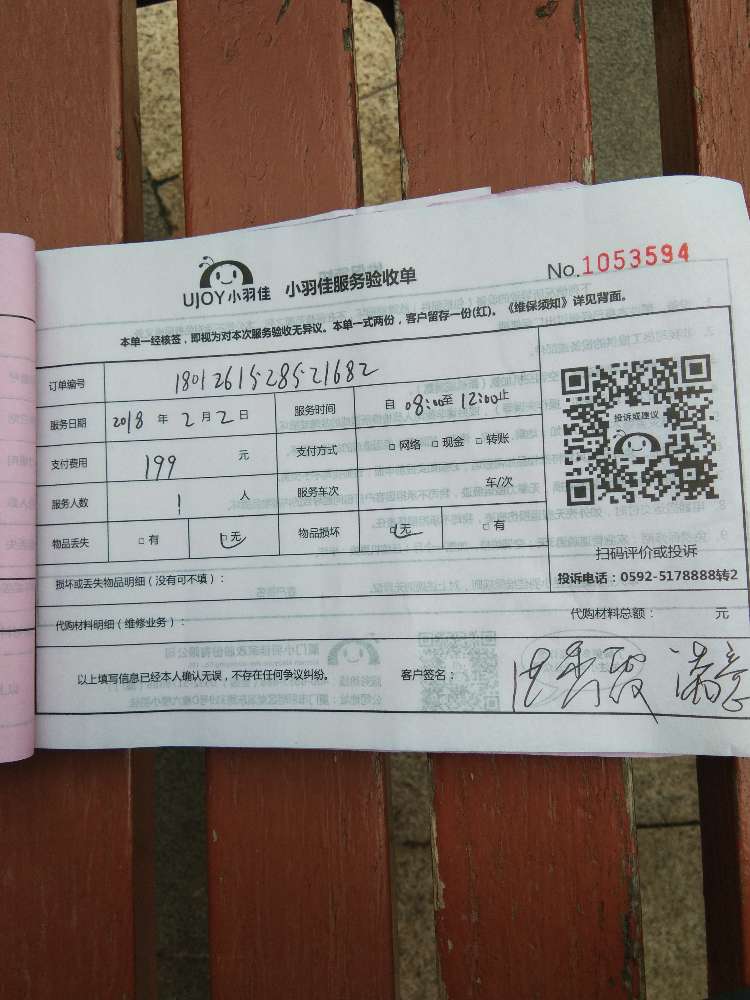 UJOY小羽佳 小羽佳服务验收单 No.1053594
本单一经核签，即视为对本次服务验收无异议。本单一式两份，客户留存一份(红)。《维保须知》详见背面。
订单编号 1801261528521682
服务日期 2018 年 2 月 2 日 服务时间 自 08:00至 12:00止
支付费用 199 元 支付方式 □ 网络 □ 现金 □ 转账
服务人数 1 人 服务车次 车/次
物品丢失 □ 有 □ 无 物品损坏 □ 无 □ 有
投诉或建议
扫码评价或投诉
投诉电话：0592-5178888转2
损坏或丢失物品明细（没有可不填）：
代购材料明细（维修业务）： 代购材料总额： 元
以上填写信息已经本人确认无误，不存在任何争议纠纷。 客户签名： 满意